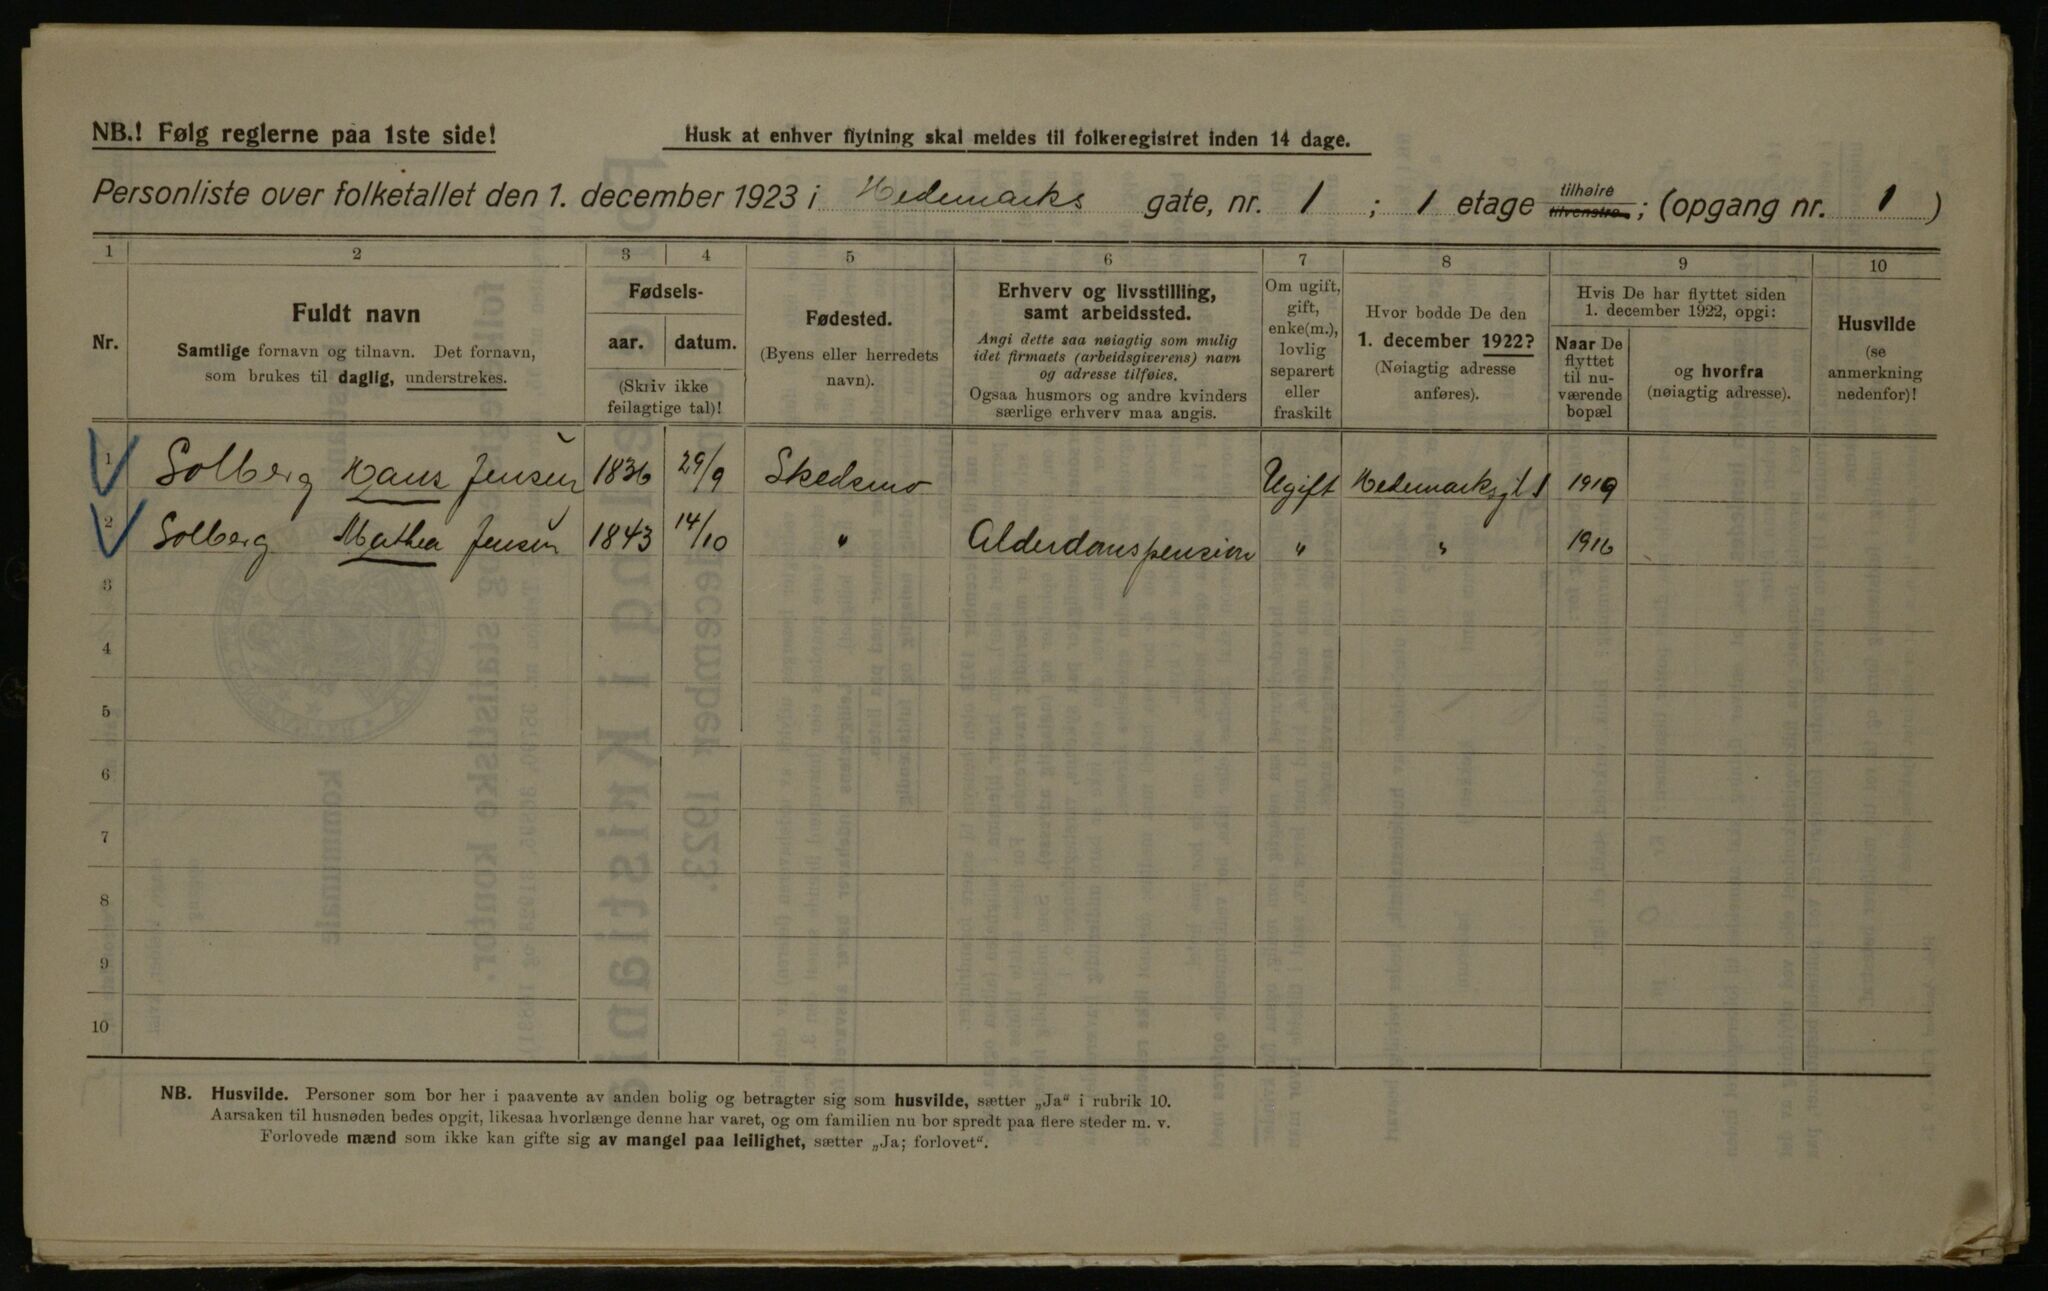 NB.! Følg reglerne paa 1ste side!
Husk at enhver flytning skal meldes til folkeregistret inden 14 dage.
Personliste over folketallet den 1. december 1923 i Hedemarks gate, nr. 1 ; 1 etage tilhøire tilvenstre ; (opgang nr. 1 )
1 2 3 4 5 6 7 8 9 10
Nr.
Fuldt navn
Samtlige fornavn og tilnavn. Det fornavn,
som brukes til daglig, understrekes.
Fødsels-
aar. datum.
(Skriv ikke
feilagtige tal)!
Fødested.
(Byens eller herredets
navn).
Erhverv og livsstilling,
samt arbeidssted.
Angi dette saa nøiagtig som mulig
idet firmaets (arbeidsgiverens) navn
og adresse tilføies.
Ogsaa husmors og andre kvinders
særlige erhverv maa angis.
Om ugift,
gift,
enke(m.),
lovlig
separert
eller
fraskilt
Hvor bodde De den
1. december 1922?
(Nøiagtig adresse
anføres).
Hvis De har flyttet siden
1. december 1922, opgi:
Naar De
flyttet
til nu-
værende
bopæl
og hvorfra
(nøiagtig adresse).
Husvilde
(se
anmerkning
nedenfor)!
1 Solberg Hans Jensen 1836 29/9 Skedsmo Ugift Hedemarksgt 1 1919
2 Solberg Mathea Jensen 1843 14/10 " Alderdomspension " " 1916
3
4
5
6
7
8
9
10
NB. Husvilde. Personer som bor her i paavente av anden bolig og betragter sig som husvilde, sætter „Ja“ i rubrik 10.
Aarsaken til husnøden bedes opgit, likesaa hvorlænge denne har varet, og om familien nu bor spredt paa flere steder m. v.
Forlovede mænd som ikke kan gifte sig av mangel paa leilighet, sætter „Ja; forlovet“.